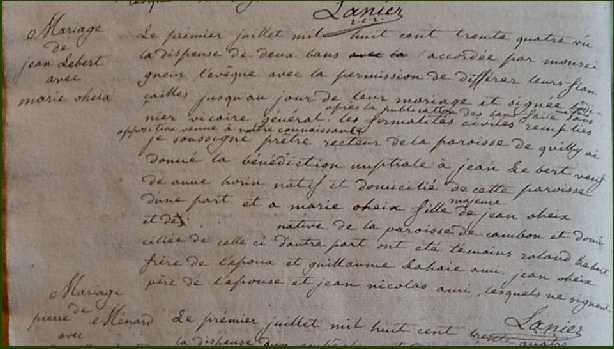 Lanier
Mariage
de
jean Lebert
avec
marie oheix
Le premier juillet mil huit cent trente quatre vu
la dispense de deux bans avec la accordée par monsei
gneur l'evêque avec la permission de différer leurs fian
cailles jusqu'au jour de leur mariage et signée
après la publication des bans faite sans
nier vicaire general. les formalités civiles remplies
opposition venue à notre connaissance
je soussigné prêtre recteur de la paroisse de quilly ai
donné la bénédiction nuptiale à jean Lebert veuf
de anne natif et domicilié de cette paroisse
majeure
d'une part et a marie oheix fille de jean oheix
et de native de la paroisse de cambon et domi
ciliée de celle ci d'autre part ont été temoins roland Lebert
frère de l'epoux et guillaume Lahaie ami, jean oheix
père de l'epouse et jean nicolas ami, lesquels ne signent
Lanier
Mariage
de
pierre Ménard
avec
Le premier juillet mil huit cent trente quatre
la dispense